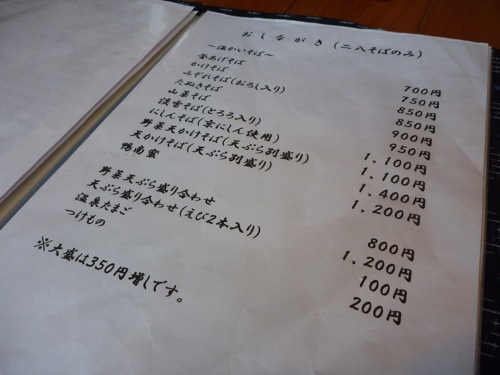 おしながき（二八そばのみ）
～温かいそば～
釜あげそば 700円
かけそば 750円
みぞれそば(おろし入り) 850円
たぬきそば 850円
山菜そば 900円
淡雪そば(とろろ入り) 950円
にしんそば(京にしん使用) 1,100円
野菜天かけそば(天ぷら別盛り) 1,100円
天かけそば(天ぷら別盛り) 1,400円
鴨南蛮 1,200円
野菜天ぷら盛り合わせ 800円
天ぷら盛り合わせ(えび2本入り) 1,200円
温泉たまご 100円
つけもの 200円
※大盛は350円増しです。